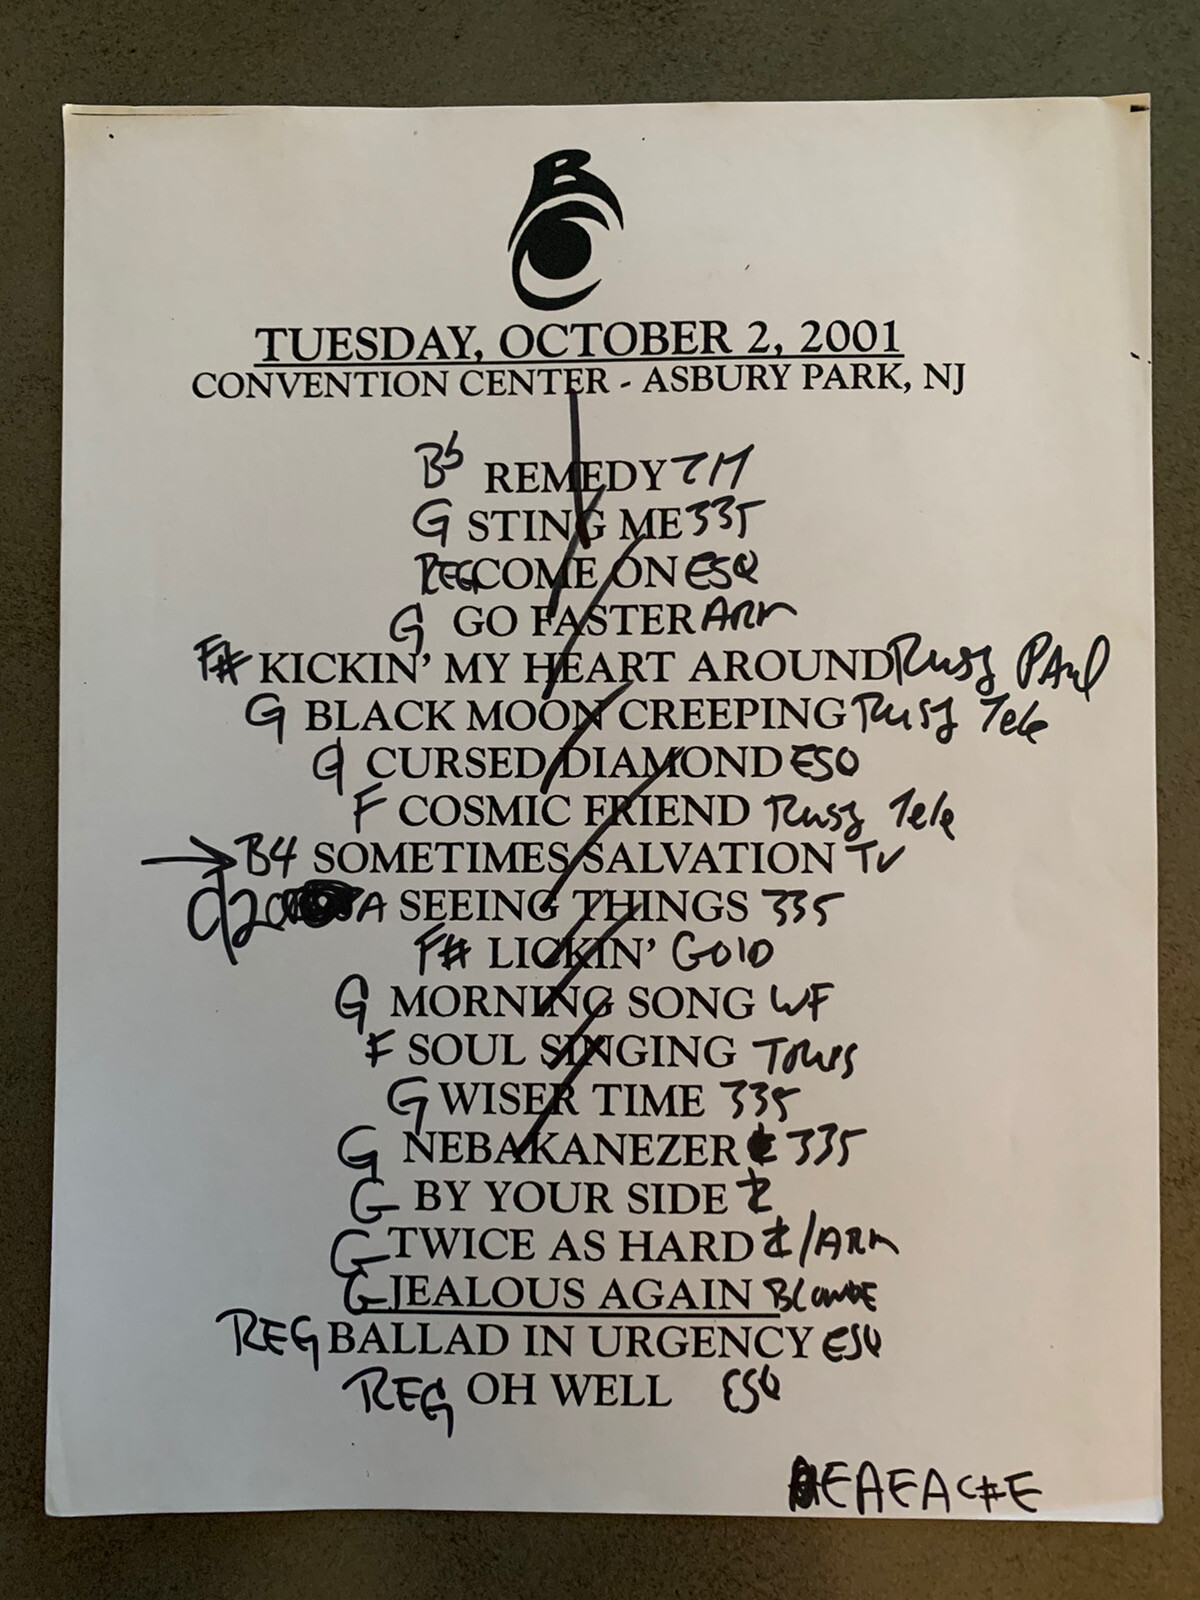 B
TUESDAY, OCTOBER 2, 2001
CONVENTION CENTER - ASBURY PARK, NJ
Bb REMEDY
G STING ME 335
REG COME ON ESQ
G GO FASTER ARM
F# KICKIN' MY HEART AROUND Rusy PAul
G BLACK MOON CREEPING Rusy Tele
G CURSED DIAMOND ESQ
F COSMIC FRIEND Rusy Tele
→ B4 SOMETIMES SALVATION TV
A SEEING THINGS 335
F# LICKIN' GOLD
G MORNING SONG WF
F SOUL SINGING
G WISER TIME 335
G NEBAKANEZER 335
G BY YOUR SIDE
G TWICE AS HARD /ARM
G JEALOUS AGAIN BLONDE
REG BALLAD IN URGENCY ESQ
REG OH WELL ESQ
EAEAC#E